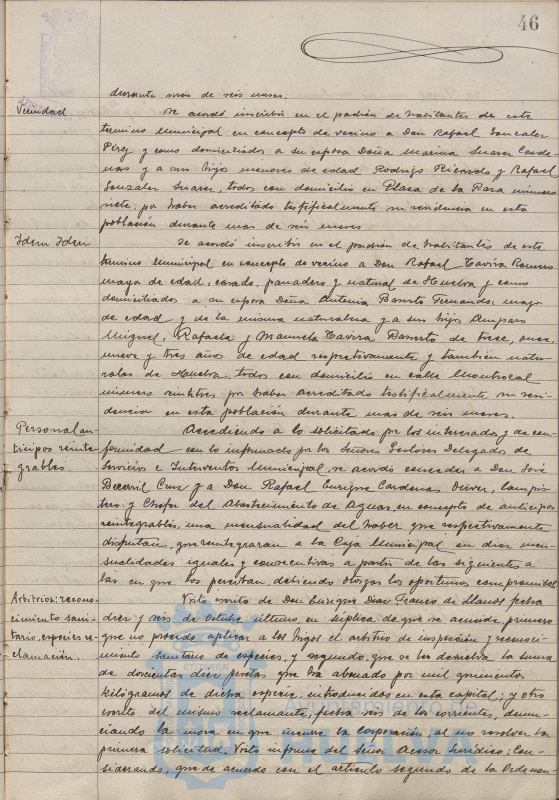 46
durante mas de seis meses.
Vecindad
Se acordó inscribir en el padrón de habitantes de este
termino Municipal en concepto de vecino a Don Rafael Gonzalez
Pérez y como domiciliados a su esposa Doña Marina Suarez Carde-
nas y a sus hijos menores de edad Rodrigo Ricardo y Rafael
Gonzalez Suarez, todos con domicilio en Plaza de la Rasa número
siete, por haber acreditado testificalmente su residencia en esta
población durante mas de seis meses.
Idem Idem
Se acordó inscribir en el padrón de habitantes de este
termino Municipal en concepto de vecino a Don Rafael Tavira Romero
mayor de edad, casado, panadero y natural de Huelva y como
domiciliados a su esposa Doña Antonia Barroto Fernandez mayor
de edad y de la misma naturaleza y a sus hijos Amparo
Miguel, Rafaela y Manuela Tavira Barroto de trece, once,
nueve y tres años de edad respectivamente y tambien natu-
rales de Huelva, todos con domicilio en calle Montrocal
número veintitres por haber acreditado testificalmente su resi-
dencia en esta población durante mas de seis meses.
Personal an-
ticipos reinte-
grables.
Accediendo a lo solicitado por los interesados y de con-
formidad con lo informado por los Señores Gestores Delegados de
Servicios e Interventor Municipal, se acordó conceder a Don José
Becerril Cruz y a Don Rafael Enrique Cardenas Oliver, lampis-
tero y Chofer del Abastecimiento de Aguas, en concepto de anticipos
reintegrables, una mensualidad del haber que respectivamente
disfrutan, que reintegraran a la Caja Municipal en diez men-
sualidades iguales y consecutivas a partir de las siguientes a
las en que los perciban, debiendo otorgar los oportunos compromisos
Arbitrios: recono-
cimiento sani-
tario, especies re-
clamación.
Visto escrito de Don Enrique Diaz Franco de Llanos fecha
diez y seis de Octubre último, en súplica de que se acuerde, primero
que no procede aplicar a los higos el arbitrio de inspección y reconoci-
miento sanitario de especies, y segundo, que se les devuelva la suma
de doscientas diez pesetas que ha abonado por mil quinientos
kilógramos de dicha especie introducidos en esta capital; y otro
escrito del mismo reclamante, fecha seis de los corrientes, denun-
ciando la mora en que incurre la Corporación, al no resolver la
primera solicitud, Visto informe del Señor Asesor Jurídico; Con-
siderando, que de acuerdo con el artículo segundo de la Ordenan-
Ayuntamiento de
HUELVA